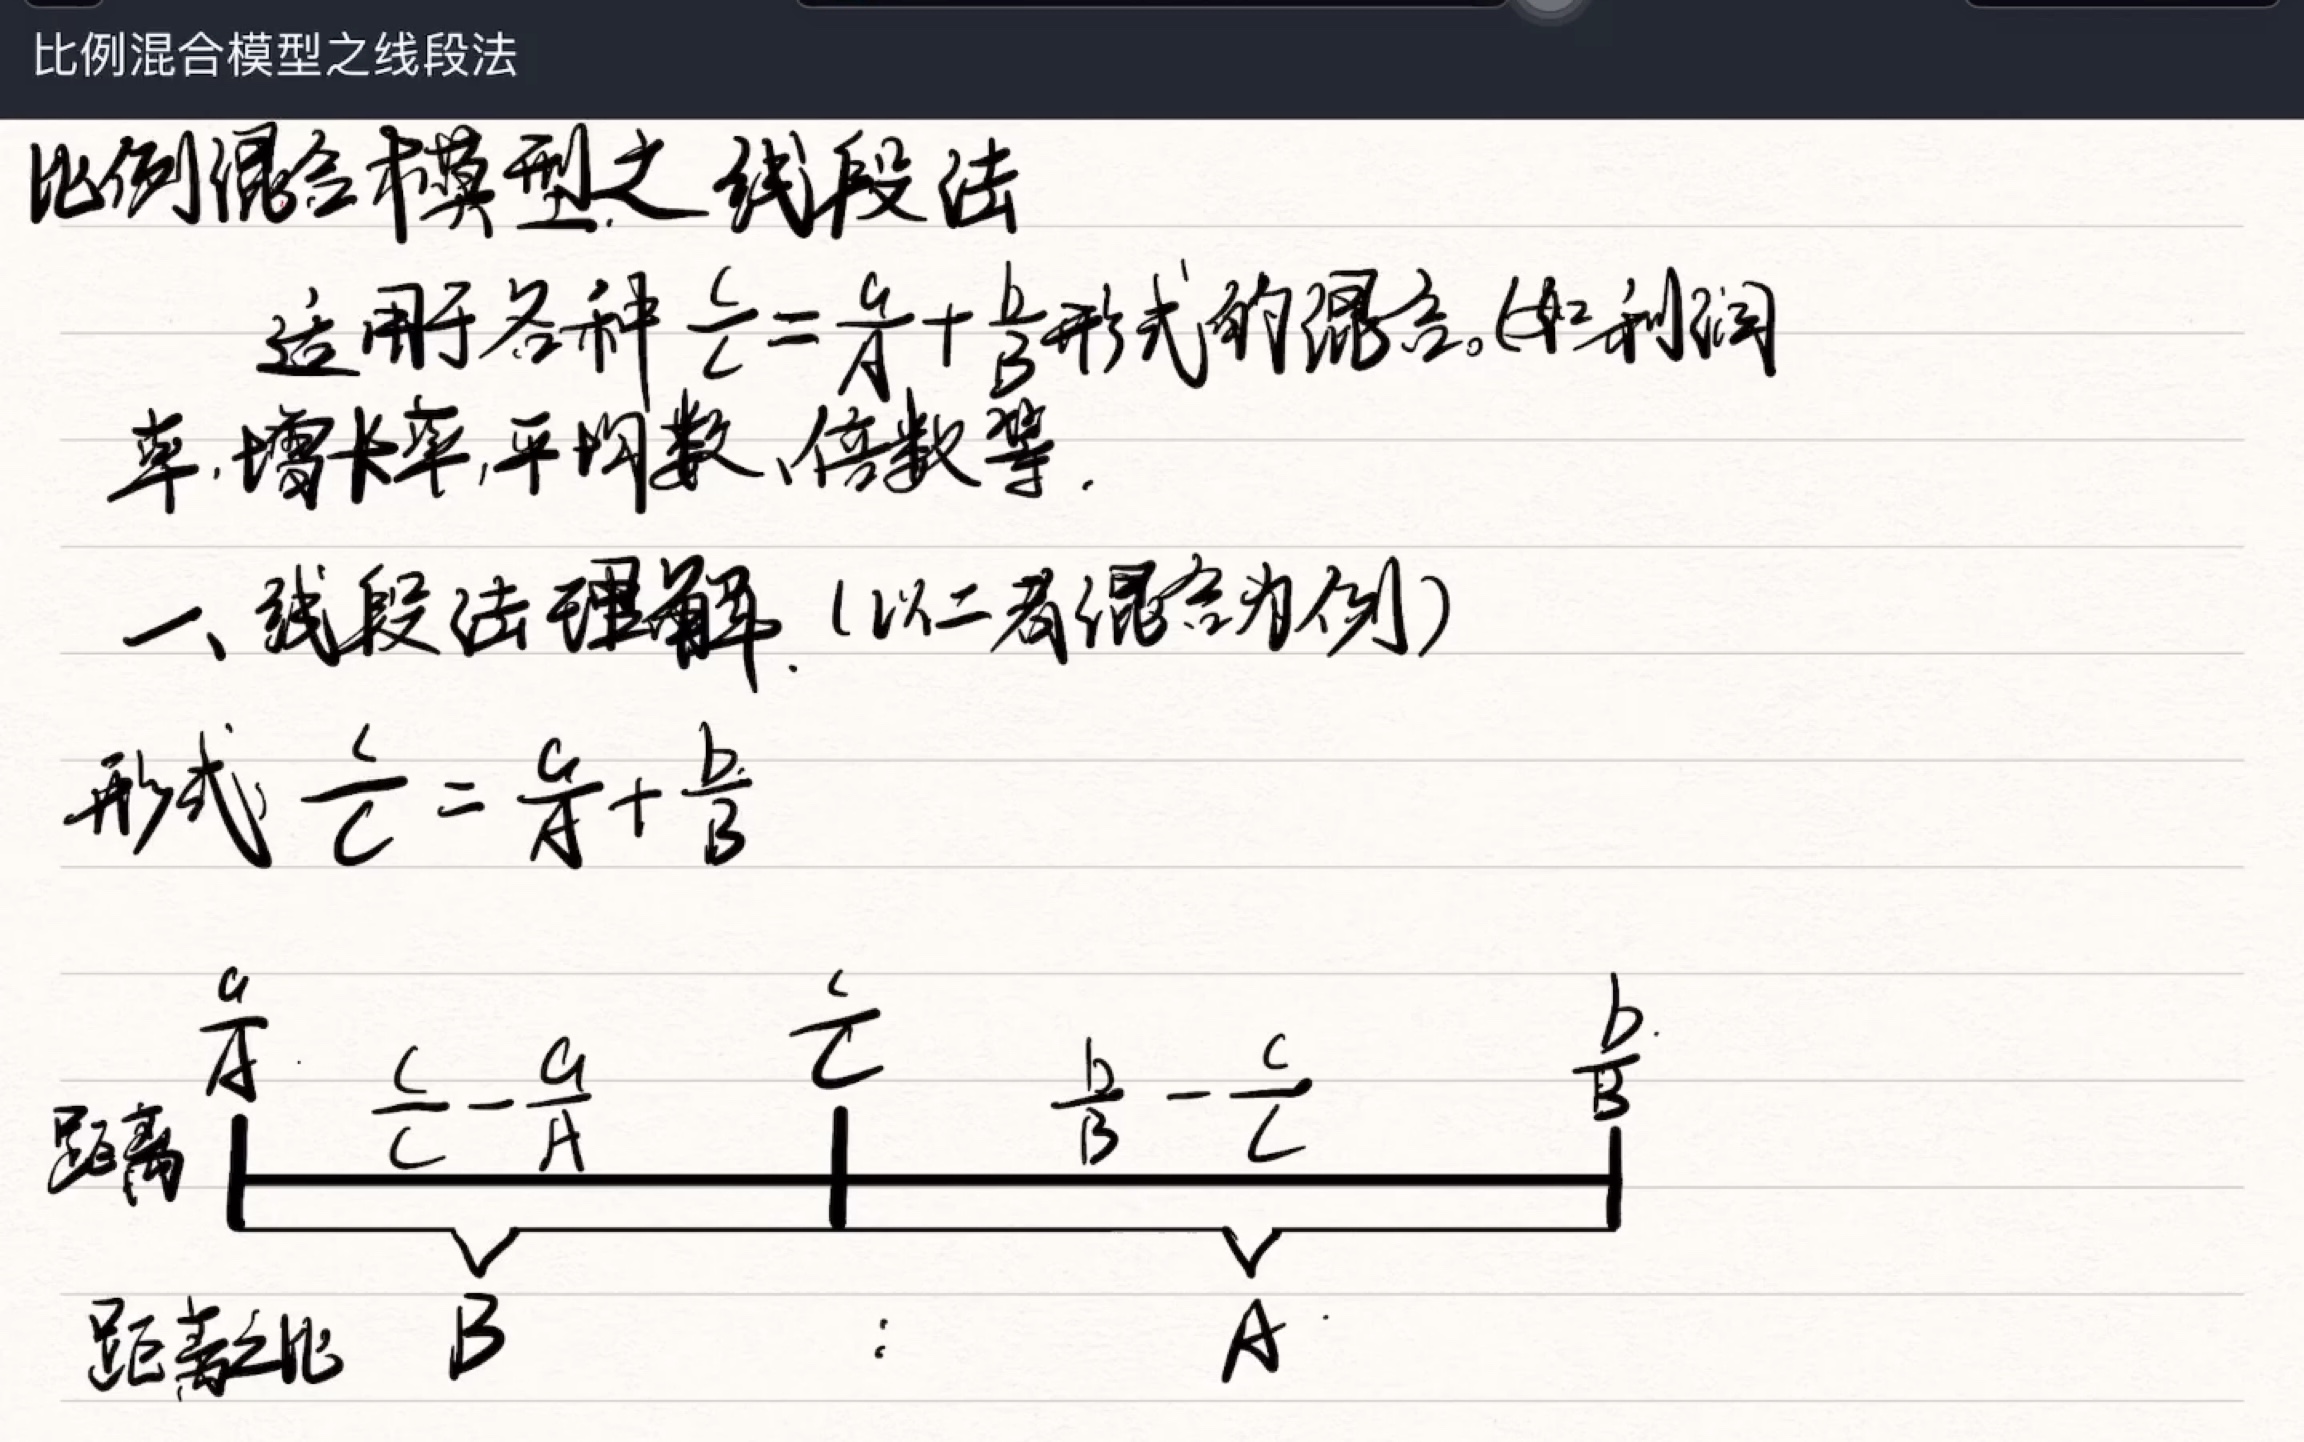 比例混合模型之线段法
比例混合模型之线段法
适用于各种 c/C = a/A + b/B 形式的混合。(如利润
率,增长率,平均数、倍数等.
一、线段法理解.(以二者混合为例)
形式: c/C = a/A + b/B
a/A c/C b/B
c/C - a/A b/B - c/C
距离
距离之比 B : A